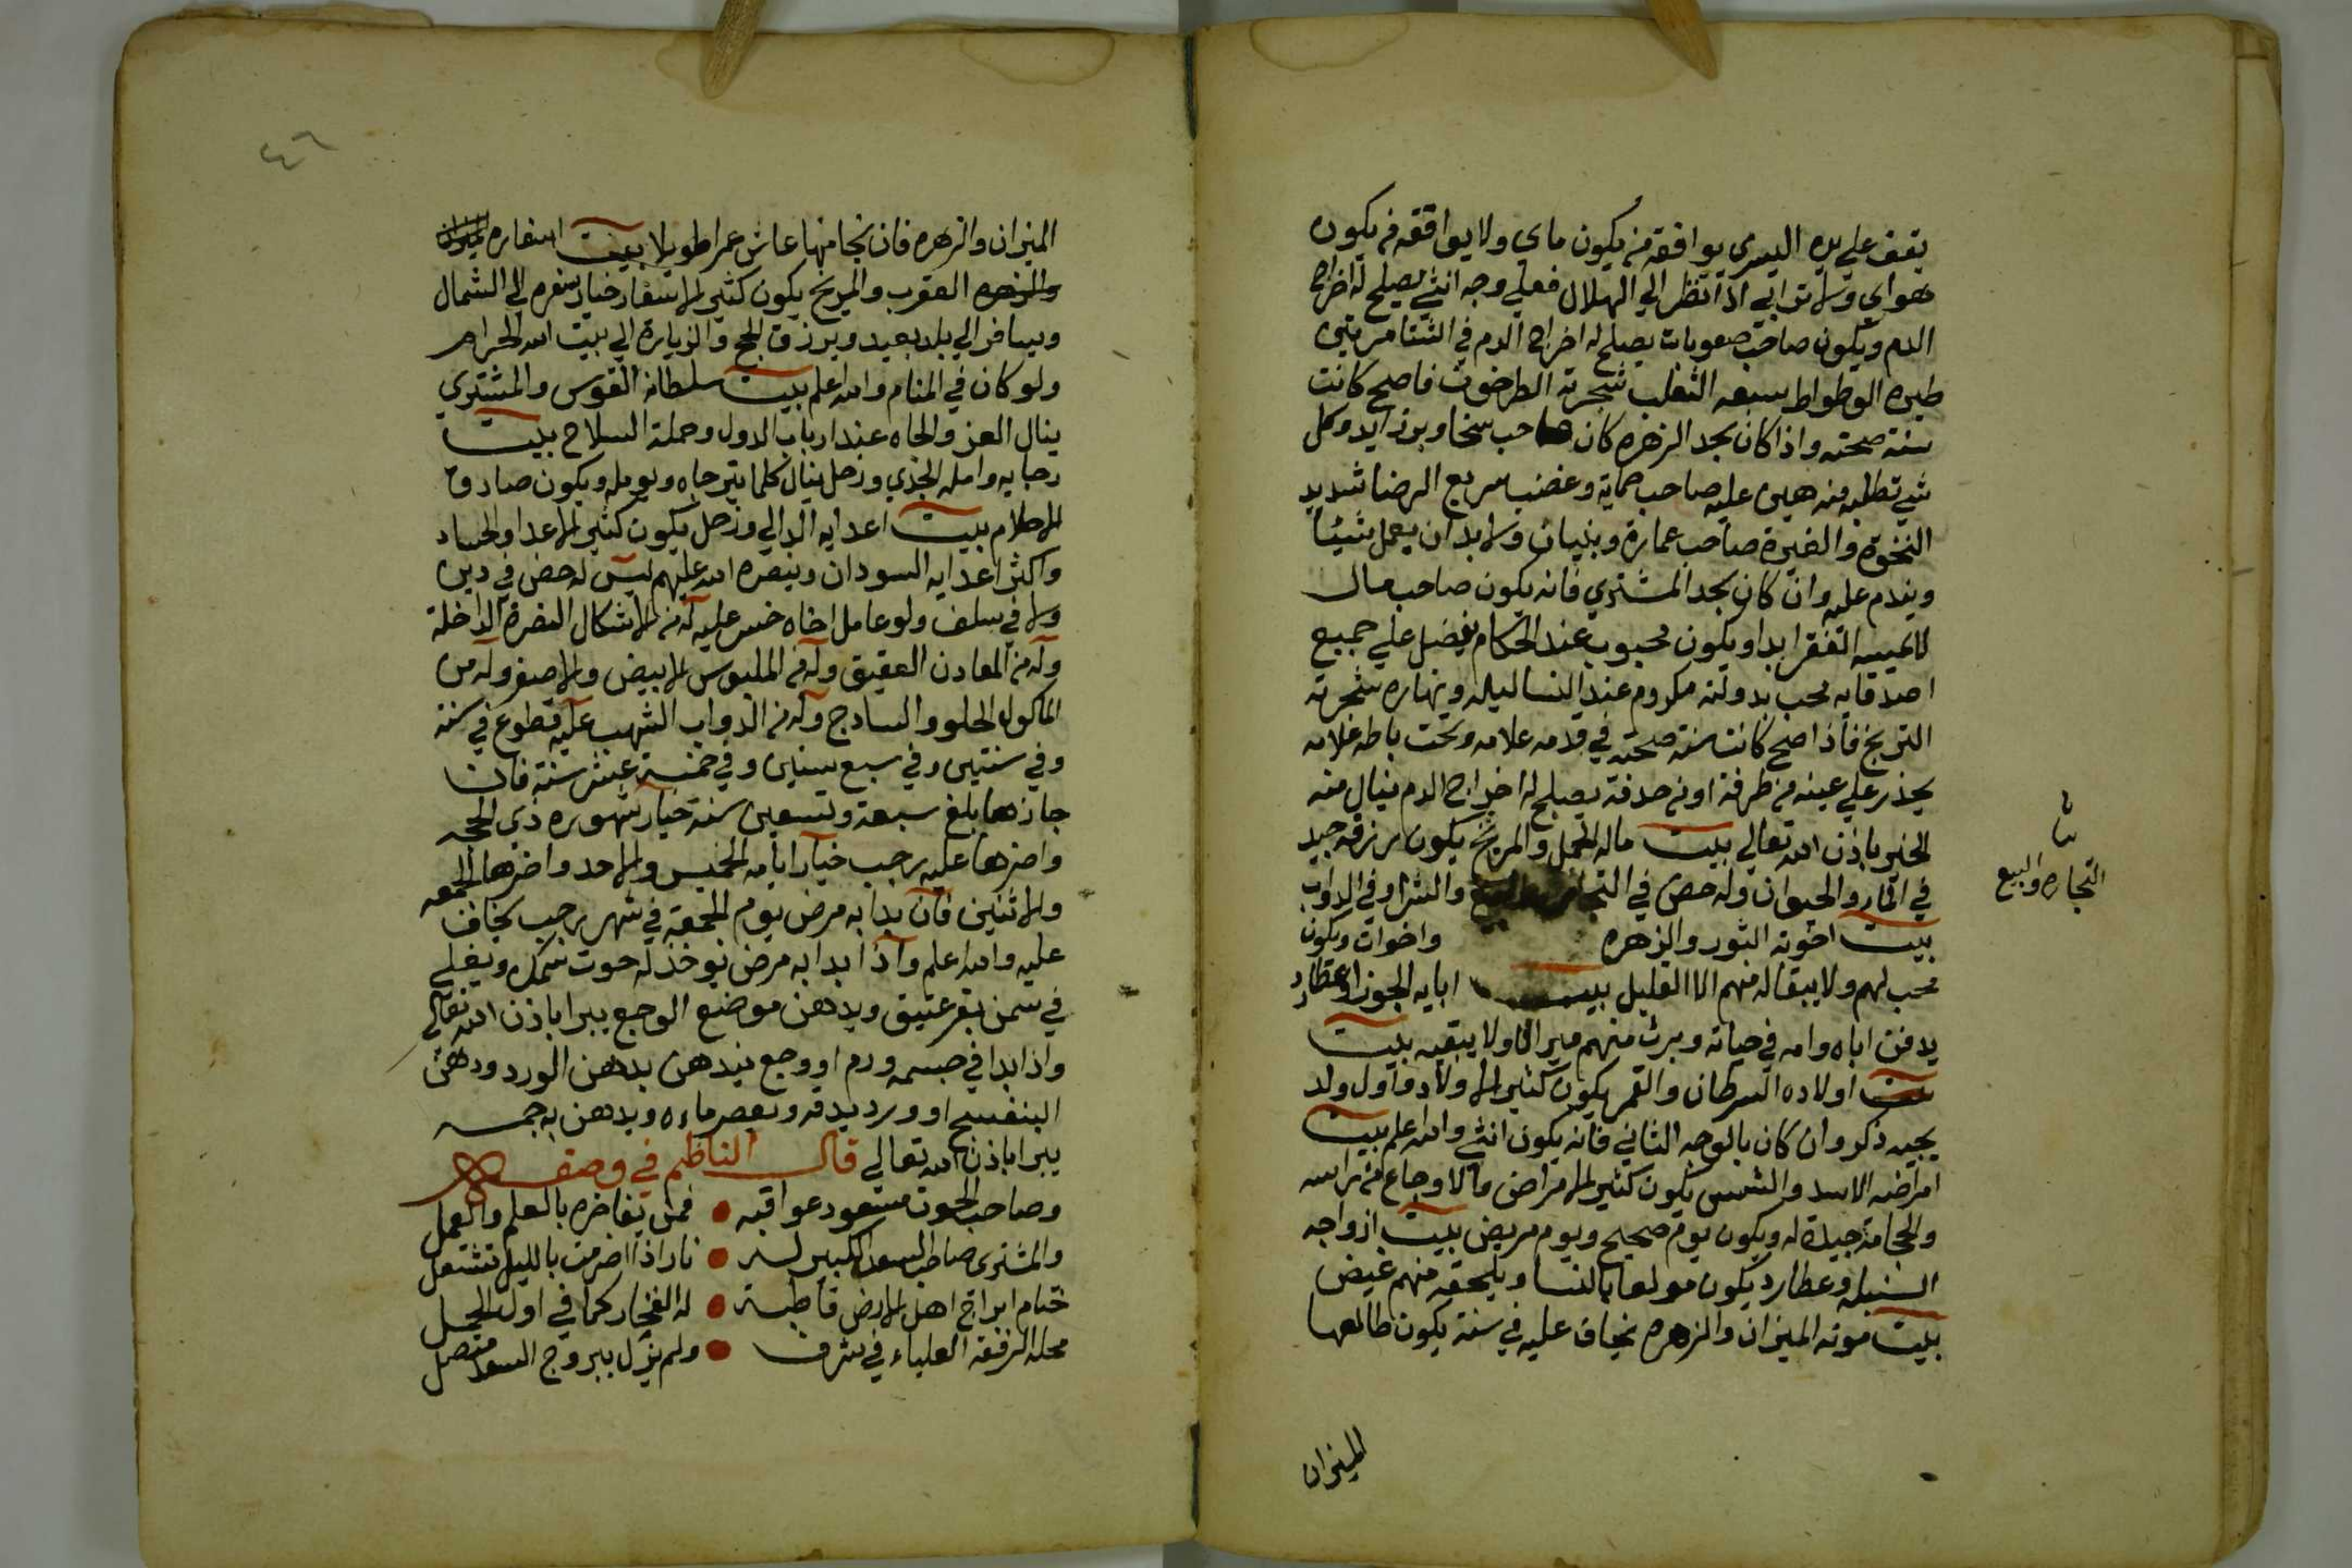 يقف علي يده اليسرى يوافقه من يكون ماي ولا يوافقه من يكون
هواي ولا ترابي اذا نظر الي الهلال فعلي وجه انثي يصلح له اخراج
الدم ويكون صاحب صعوبات يصلح له اخراج الدم في الشتا مرتين
طيره الوطواط سبعه الثعلب شجرته الطرخون فاصح كانت
سنة صحته واذا كان بحد الزهره كان صاحب سخا وبرزايد وكل
شي تطلبه منه هين عليه صاحب حماية وغضب سريع الرضا شديد
النخوة والغيرة صاحب عمارة وبنيان ولا بد ان يعمل شيئا
ويندم عليه وان كان بحد المشتري فانه يكون صاحب مال
لا يمسه الفقر ابدا ويكون محبوب عند الحكام يفضل علي جميع
اصدقايه محب بدولته مكروم عند النسا ليله ونهاره شجرته
الترنج فاذا صح كانت سنة صحته في قدمه علامه وتحت باطه علامه
يحذر علي عينه من طرفة او من حدفة يصلح له اخراج الدم ينال منه
الخير باذن الله تعالي بيت ماله الحمل والمريخ يكون رزقه جيد
في الفار والحيوان وله حض في التجاره والبيع والشرا وفي الدواب
بيت اخوته الثور والزهره واخوات ويكون
محب لهم ولا يبقا له منهم الا القليل بيت ابايه الجوزا وعطارد
يدفن اباه وامه في حياته ويرث منهم ميراثا ولا يبقيه بيت
اولاده السرطان والقمر يكون كثير الاولاد فاول ولد
يجيه ذكر وان كان بالوجه الثاني فانه يكون انثي والله اعلم بيت
امراضه الاسد والشمس يكون كثير الامراض والاوجاع من راسه
والحجامة جيدة له ويكون يوم صحيح ويوم مريض بيت ازواجه
السنبله وعطارد يكون مولعا بالنسا ويلحقه منهم غيض
بيت موته الميزان والزهره يخاف عليه في سنة يكون طالعها
الميزان
التجاره والبيع
٤٦
الميزان والزهره فان نجا منها عاش عمرا طويلا بيت اسفاره
العقرب والمريخ يكون كثير الاسفار خيار سفره الي الشمال
ويسافر الي بلد بعيد ويرزق الحج والزيارة الي بيت الله الحرام
ولو كان في المنام والله اعلم بيت سلطانه القوس والمشتري
ينال العز والجاه عند ارباب الدول وحملة السلاح بيت
رجايه وامله الجدي وزحل ينال كلما يترجاه ويومله ويكون صادق
الاحلام بيت اعدايه الدالي وزحل يكون كثير الاعدا والحساد
واكثر اعدايه السودان وينصره الله عليهم ليس له حض في دين
ولا في سلف ولو عامل اخاه خسر عليه له من الاشكال النصرة الداخلة
وله من المعادن العقيق وله من الملبوس الابيض والاصفر وله من
الماكول الحلو والسادج وله من الدواب الشهب عليه قطوع في سنة
وفي سنتين وفي سبع سنين وفي خمسة عشر سنة فان
جازها بلغ سبعة وتسعين سنة خيار شهوره ذي الحجه
واضرها عليه رجب خيار ايامه الخميس والاحد واضرها الجمعه
والاثنين فان بدا به مرض يوم الجمعة في شهر رجب يخاف
عليه والله اعلم واذا ابدا به مرض يوخذ له حوت سمك ويغلي
في سمن بقر عتيق ويدهن موضع الوجع يبرا باذن الله تعالي
واذا بدا في جسمه ورم او وجع يندهن بدهن الورد ودهن
البنفسج او ورد يدقه ويعصر ماءه ويدهن به جسمه
يبرا باذن الله تعالي قال الناظم في وصفه
وصاحب الحوت مسعود عواقبه • فمن يفاخره بالعلم والعمل
والمشتري صاحب السعد الكبير له • نار اذا اضرمت بالليل تشتعل
ختام ابراج اهل الارض قاطبة • له الفخار كما في اول الحمل
محله الرفعة العلياء في شرف • ولم يزل ببروج السعد متصل